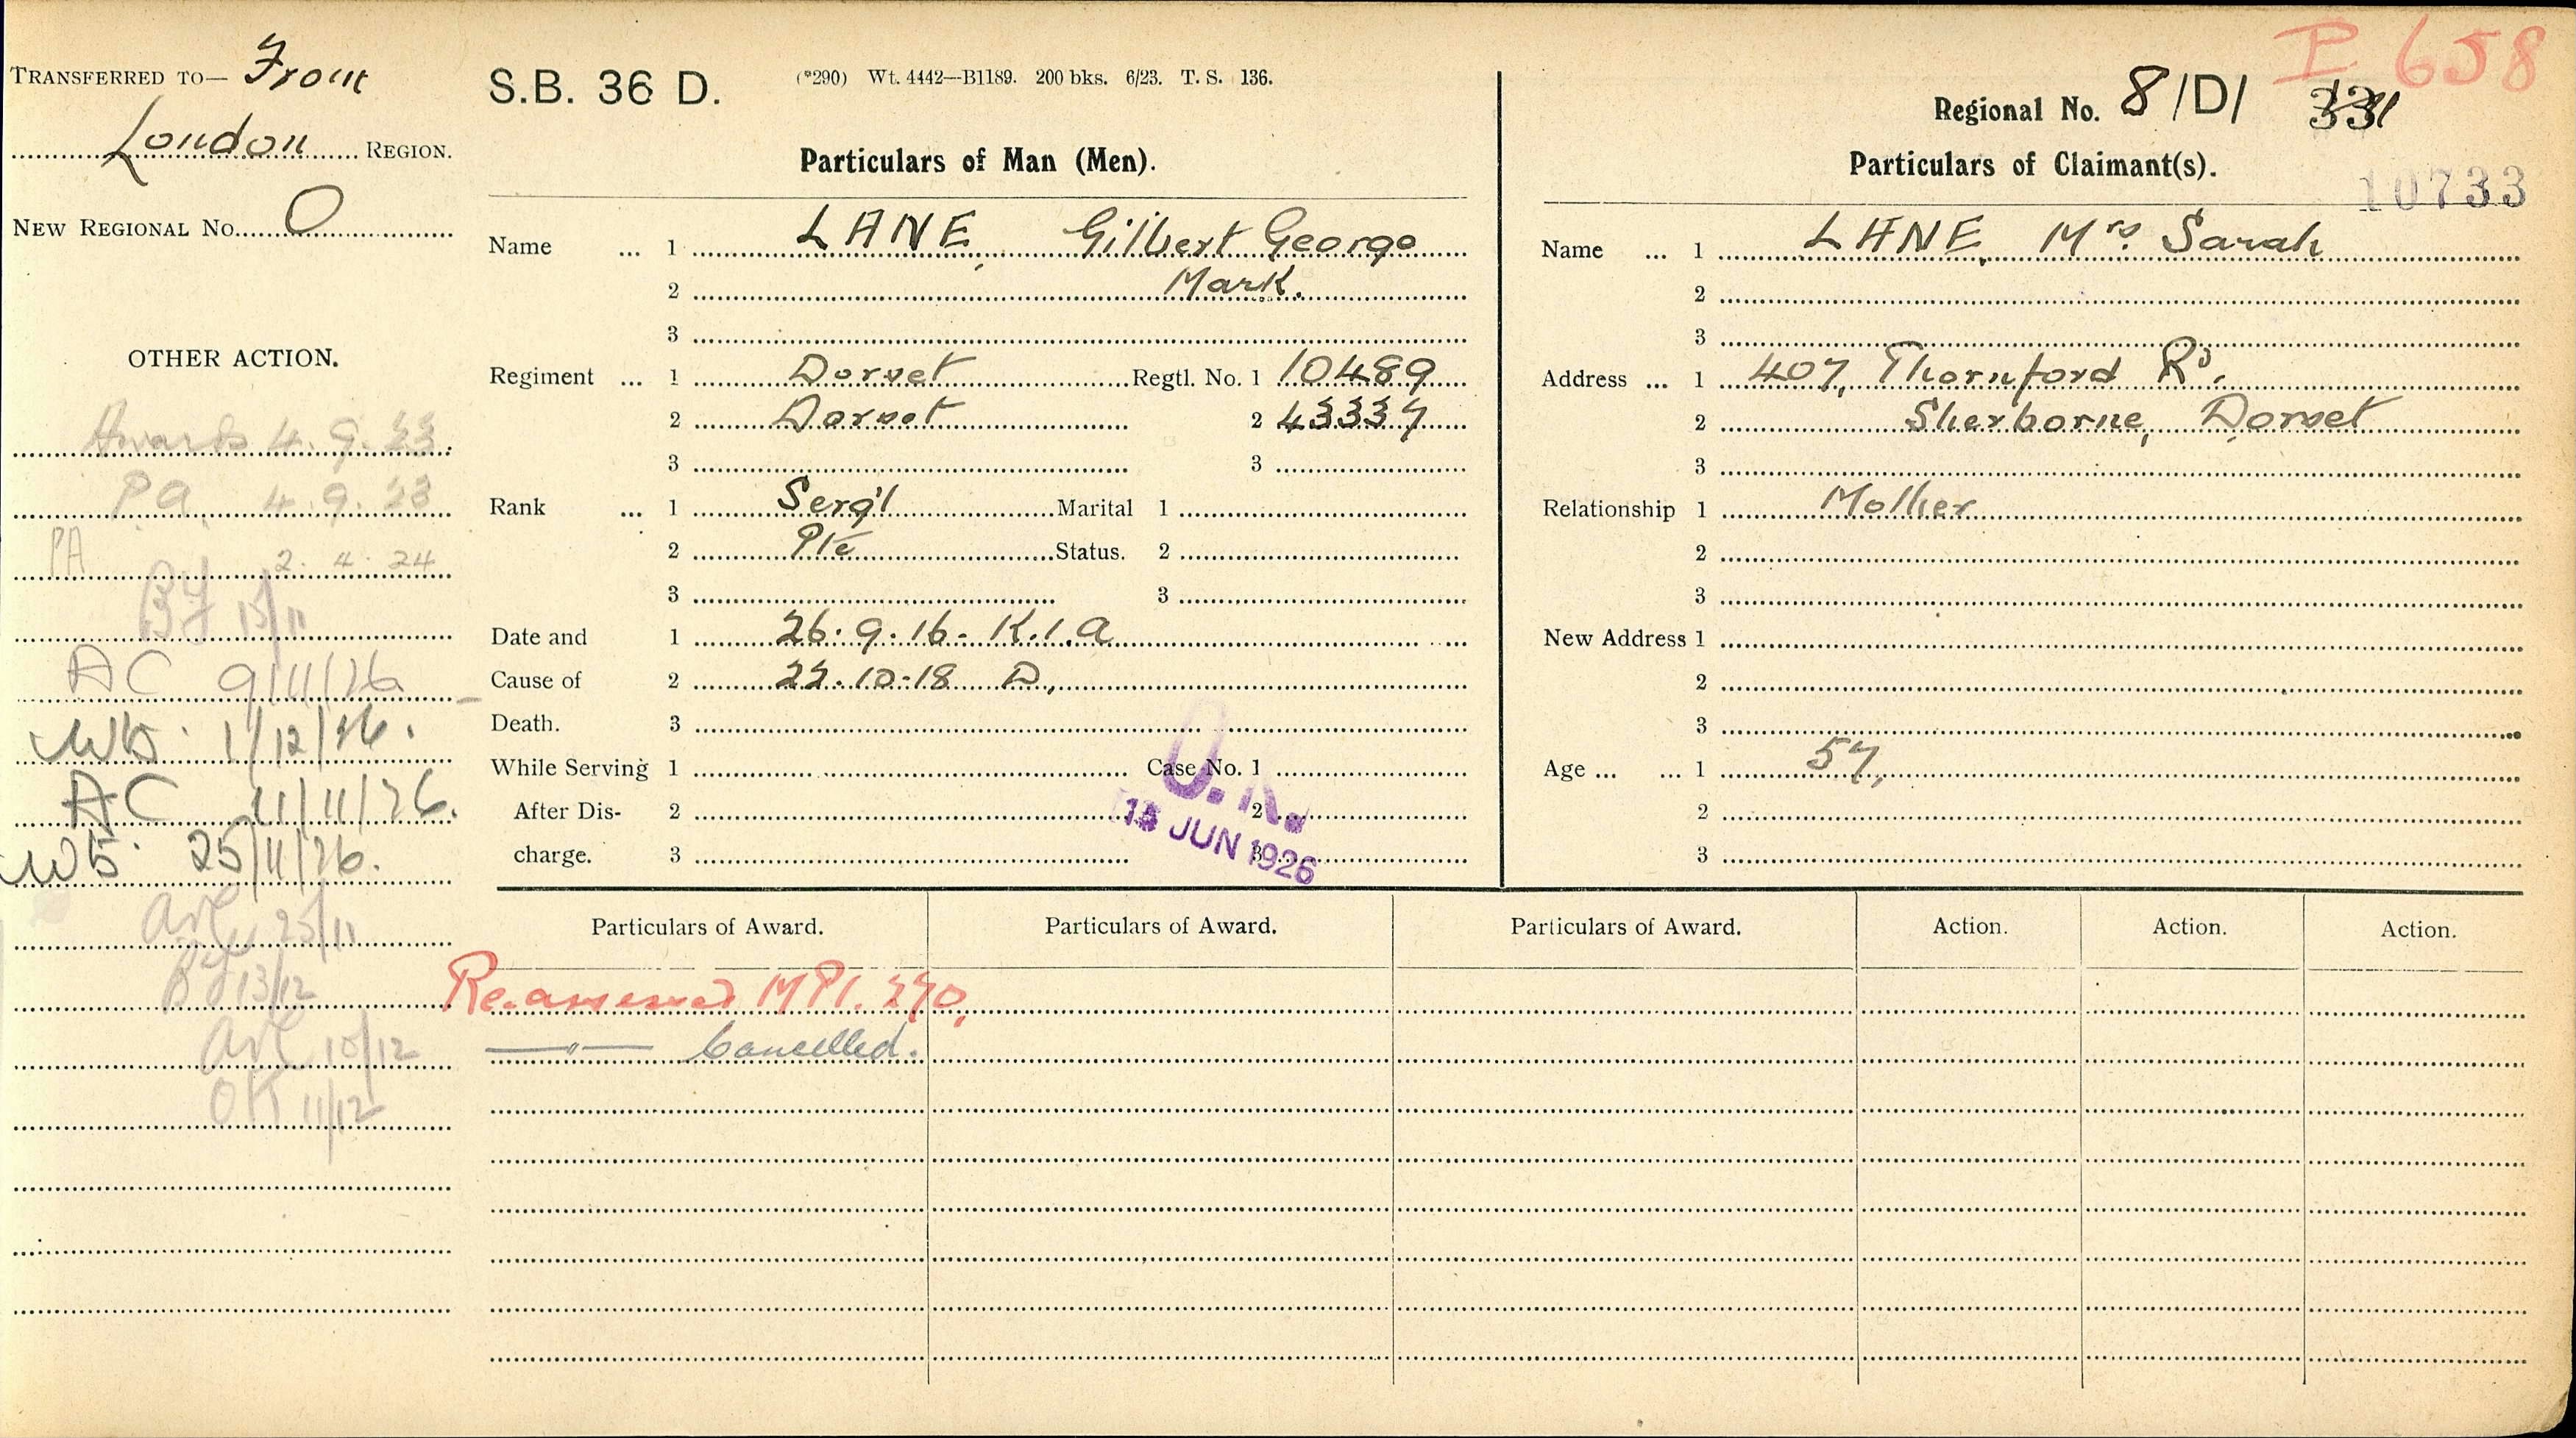 TRANSFERRED TO— From
London REGION.
NEW REGIONAL No. O
OTHER ACTION.
Awards 4.9.23.
P.A. 4.9.23
PA 2.4.24
BF 15/11
AC 9/11/26
1/12/26.
AC 11/11/26.
25/11/26.
25/11
BF 13/12
10/12
OK 11/12
S.B. 36 D.
(*290) Wt. 4442—B1189. 200 bks. 6/23. T. S. 136.
Particulars of Man (Men).
Name ... 1 LANE, Gilbert George
2 Mark.
3
Regiment ... 1 Dorset Regtl. No. 1 10489
2 Dorset 2 43337
3 3
Rank ... 1 Serg't Marital 1
2 Pte Status. 2
3 3
Date and 1 26.9.16- K.I.A
Cause of 2 22.10-18 D,
Death. 3
While Serving 1 Case No. 1
After Dis- 2 2
charge. 3 3
O.K.
JUN 1926
P 658
Regional No. 8/D/
Particulars of Claimant(s).
10733
Name ... 1 LANE, Mrs. Sarah
2
3
Address ... 1 407, Thornford Rd.
2 Sherborne, Dorset
3
Relationship 1 Mother
2
3
New Address 1
2
3
Age ... ... 1 57,
2
3
Particulars of Award. Particulars of Award. Particulars of Award. Action. Action. Action.
Re.assessed MP1. 270,
—"— Cancelled.